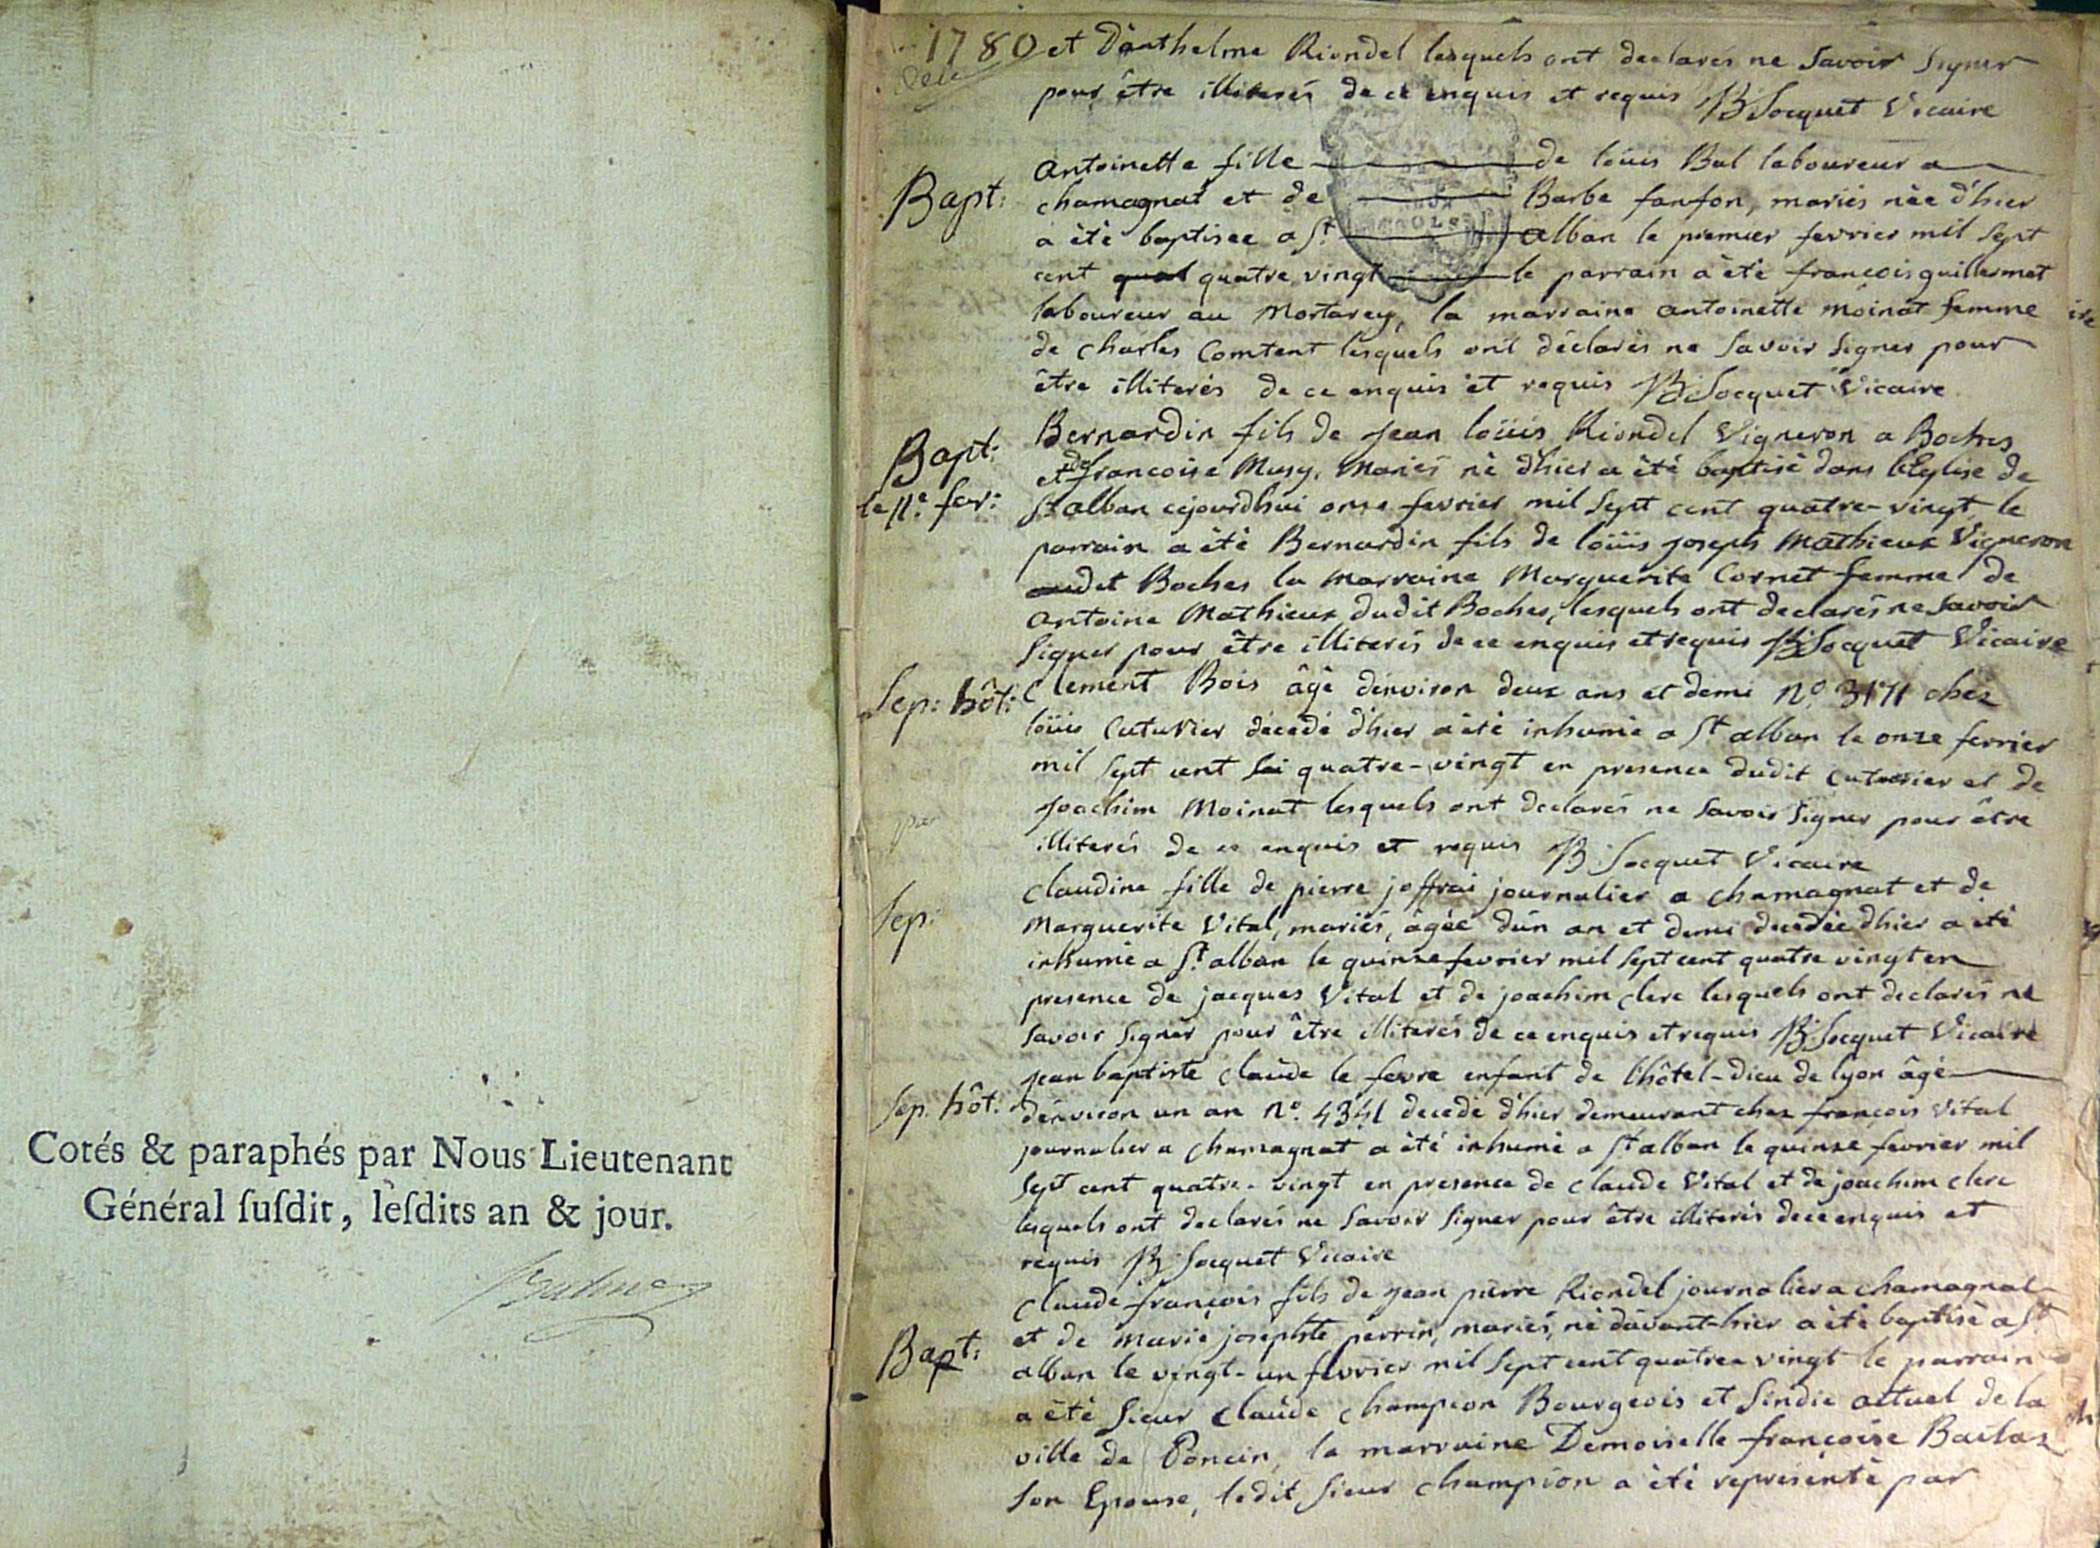 Cotés & paraphés par Nous Lieutenant
Général ſuſdit, leſdits an & jour.
1780 et d'anthelme Riondel lesquels ont declarés ne savoir signer
pour être illiterés de ce enquis et requis B Socquet Vicaire
Bapt:
antoinette fille de loüis Bal laboureur a
chamagnat et de Barbe fanfon, mariés née d'hier
a été baptisée a St alban le premier fevrier mil sept
cent quat quatre vingt le parrain a été françois guillermet
laboureur au Mortarey, la marraine antoinette moinat femme
de charles Comtent lesquels ont déclarés ne savoir signer pour
être illiterés de ce enquis et requis B Socquet Vicaire
Bapt:
le 11e fev:
Bernardin fils de jean loüis Riondel Vigneron a Boches
et de francoise Musy, mariés né d'hier a été baptisé dans l'Eglise de
St alban cejourdhui onze fevrier mil sept cent quatre-vingt le
parrain a été Bernardin fils de loüis joseph Mathieux Vigneron
audit Boches la marraine Marguerite Cornet femme de
antoine Mathieux dudit Boches, lesquels ont declarés ne savoir
signer pour être illiterés de ce enquis et requis B Socquet Vicaire
Sep: hôt:
Clement Bois âgé d'environ deux ans et demi No. 3171 chez
loüis Cuturier décedé d'hier a été inhumé a St alban le onze fevrier
mil sept cent soi quatre-vingt en presence dudit Cuturier et de
joachim Moinat lesquels ont declarés ne savoir signer pour être
illiterés de ce enquis et requis B Socquet Vicaire
Sep:
claudine fille de pierre joffrai journalier a chamagnat et de
Marguerite Vital, mariés, âgée d'un an et demi decedée d'hier a été
inhumé a St. alban le quinze fevrier mil sept cent quatre vingt en
presence de jacques Vital et de joachim clerc lesquels ont declarés ne
savoir signer pour être illiterés de ce enquis et requis B Socquet Vicaire
Sep. hôt.
jean baptiste claude le fevre enfant de l'hôtel-dieu de lyon âgé
d'environ un an No. 4341 decedé d'hier demeurant chez françois Vital
journalier a chamagnat a été inhumé a St alban le quinze fevrier mil
sept cent quatre-vingt en presence de claude Vital et de joachim clerc
lesquels ont declarés ne savoir signer pour être illiterés de ce enquis et
requis B Socquet Vicaire
Bapt:
claude françois fils de jean pierre Riondel journalier a chamagnat
et de marie josephte perrin, mariés, né d'avant-hier a été baptisé a St
alban le vingt-un fevrier mil sept cent quatre vingt le parrain
a été sieur claude champion Bourgeois et sindic actuel de la
ville de Poncin, la marraine Demoiselle françoise Bailas
son Epouse, ledit sieur champion a été représenté par